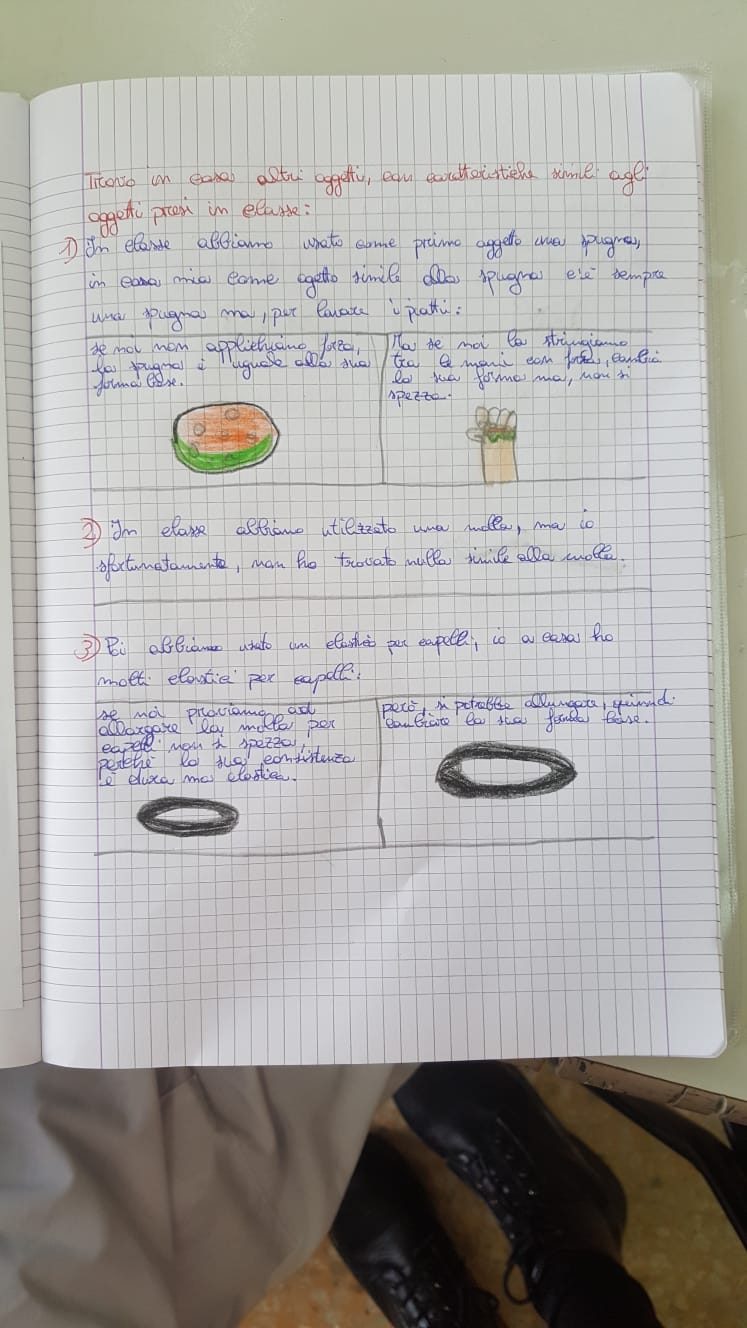 Trovo in casa altri oggetti, con caratteristiche simili agli
oggetti presi in classe:
1) In classe abbiamo usato come primo oggetto una spugna,
in casa mia come ogetto simile alla spugna c'è sempre
una spugna ma, per lavare i piatti:
se noi non applichiamo forza,
la spugna è uguale alla sua
forma base.
Ma se noi la stringiamo
tra le mani con forza, cambia
la sua forma ma, non si
spezza.
2) In classe abbiamo utilizzato una molla, ma io
sfortunatamente, non ho trovato nulla simile alla molla.
3) Poi abbiamo usato un elastico per capelli, io a casa ho
molti elastici per capelli:
se noi proviamo ad
allargare la molla per
capelli non si spezza,
perché la sua consistenza
è dura ma elastica.
però, si potrebbe allungare, quindi
cambiare la sua forma base.